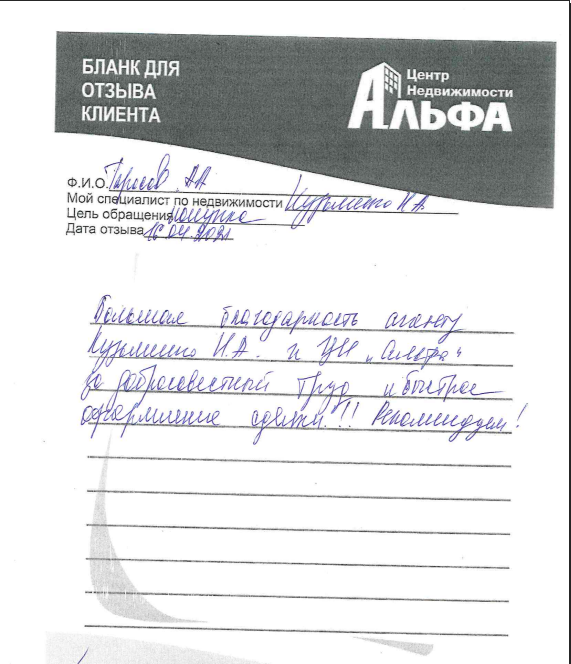 БЛАНК ДЛЯ
ОТЗЫВА
КЛИЕНТА
Центр
Недвижимости
АЛЬФА
Ф.И.О. Тарасов АА
Мой специалист по недвижимости Кузьменко Н.А.
Цель обращения покупка
Дата отзыва 16.04.2021
Большая благодарность агенту
Кузьменко Н.А. и ЦН „Альфа“
за добросовестный труд и быстрое
оформление сделки!!! Рекомендуем!